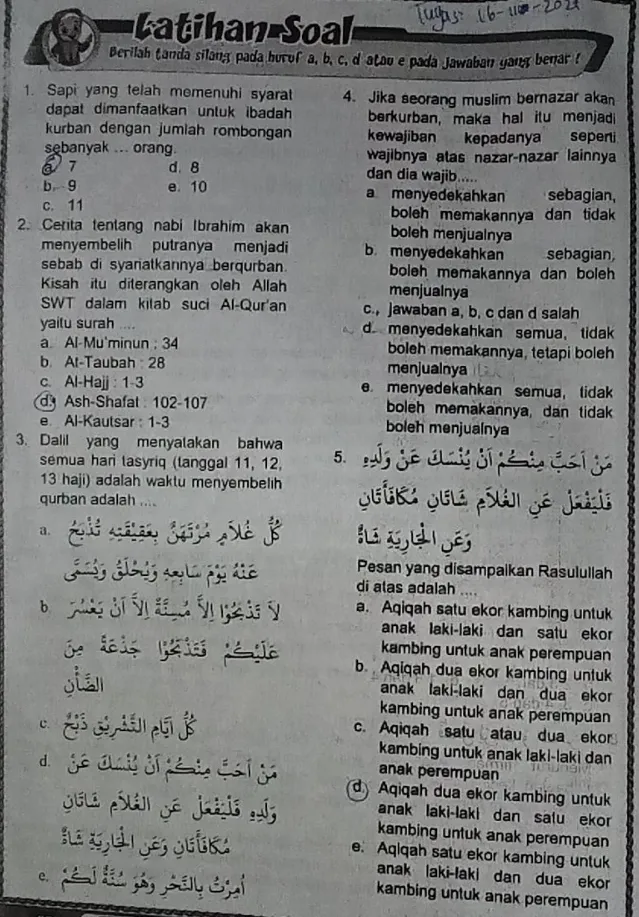 Latihan Soal
Tugas: 16-
-2021
Berilah tanda silang pada huruf a, b, c, d atau e pada jawaban yang benar !
1. Sapi yang telah memenuhi syarat
dapat dimanfaatkan untuk ibadah
kurban dengan jumlah rombongan
sebanyak ... orang.
a. 7
d. 8
b. 9
e. 10
c. 11
2. Cerita tentang nabi Ibrahim akan
menyembelih putranya menjadi
sebab di syariatkannya berqurban.
Kisah itu diterangkan oleh Allah
SWT dalam kitab suci Al-Qur'an
yaitu surah ....
a. Al-Mu'minun : 34
b. At-Taubah : 28
c. Al-Hajj : 1-3
d. Ash-Shafat : 102-107
e. Al-Kautsar : 1-3
3. Dalil yang menyatakan bahwa
semua hari tasyriq (tanggal 11, 12,
13 haji) adalah waktu menyembelih
qurban adalah ....
a. كُلُّ غُلاَمٍ مُرْتَهَنٌ بِعَقِيْقَتِهِ تُذْبَحُ
عَنْهُ يَوْمَ سَابِعِهِ وَيُحْلَقُ وَيُسَمَّى
b. لاَ تَذْبَحُوْا إِلاَّ مُسِنَّةً إِلاَّ أَنْ يَعْسُرَ
عَلَيْكُمْ فَتَذْبَحُوْا جَذْعَةً مِنَ
الضَّأْنِ
c. كُلُّ أَيَّامِ التَّشْرِيْقِ ذَبْحٌ
d. مَنْ أَحَبَّ مِنْكُمْ أَنْ يُنْسَكَ عَنْ
وَلَدِهِ فَلْيَفْعَلْ عَنِ الْغُلاَمِ شَاتَانِ
مُكَافَأَتَانِ وَعَنِ الْجَارِيَةِ شَاةٌ
e. أُمِرْتُ بِالنَّحْرِ وَهُوَ سُنَّةٌ لَكُمْ
4. Jika seorang muslim bernazar akan
berkurban, maka hal itu menjadi
kewajiban kepadanya seperti
wajibnya atas nazar-nazar lainnya
dan dia wajib.....
a. menyedekahkan sebagian,
boleh memakannya dan tidak
boleh menjualnya
b. menyedekahkan sebagian,
boleh memakannya dan boleh
menjualnya
c. jawaban a, b, c dan d salah
d. menyedekahkan semua, tidak
boleh memakannya, tetapi boleh
menjualnya
e. menyedekahkan semua, tidak
boleh memakannya, dan tidak
boleh menjualnya
5. مَنْ أَحَبَّ مِنْكُمْ أَنْ يُنْسَكَ عَنْ وَلَدِهِ
فَلْيَفْعَلْ عَنِ الْغُلاَمِ شَاتَانِ مُكَافَأَتَانِ
وَعَنِ الْجَارِيَةِ شَاةٌ
Pesan yang disampaikan Rasulullah
di atas adalah ....
a. Aqiqah satu ekor kambing untuk
anak laki-laki dan satu ekor
kambing untuk anak perempuan
b. Aqiqah dua ekor kambing untuk
anak laki-laki dan dua ekor
kambing untuk anak perempuan
c. Aqiqah satu atau dua ekor
kambing untuk anak laki-laki dan
anak perempuan
d. Aqiqah dua ekor kambing untuk
anak laki-laki dan satu ekor
kambing untuk anak perempuan
e. Aqiqah satu ekor kambing untuk
anak laki-laki dan dua ekor
kambing untuk anak perempuan